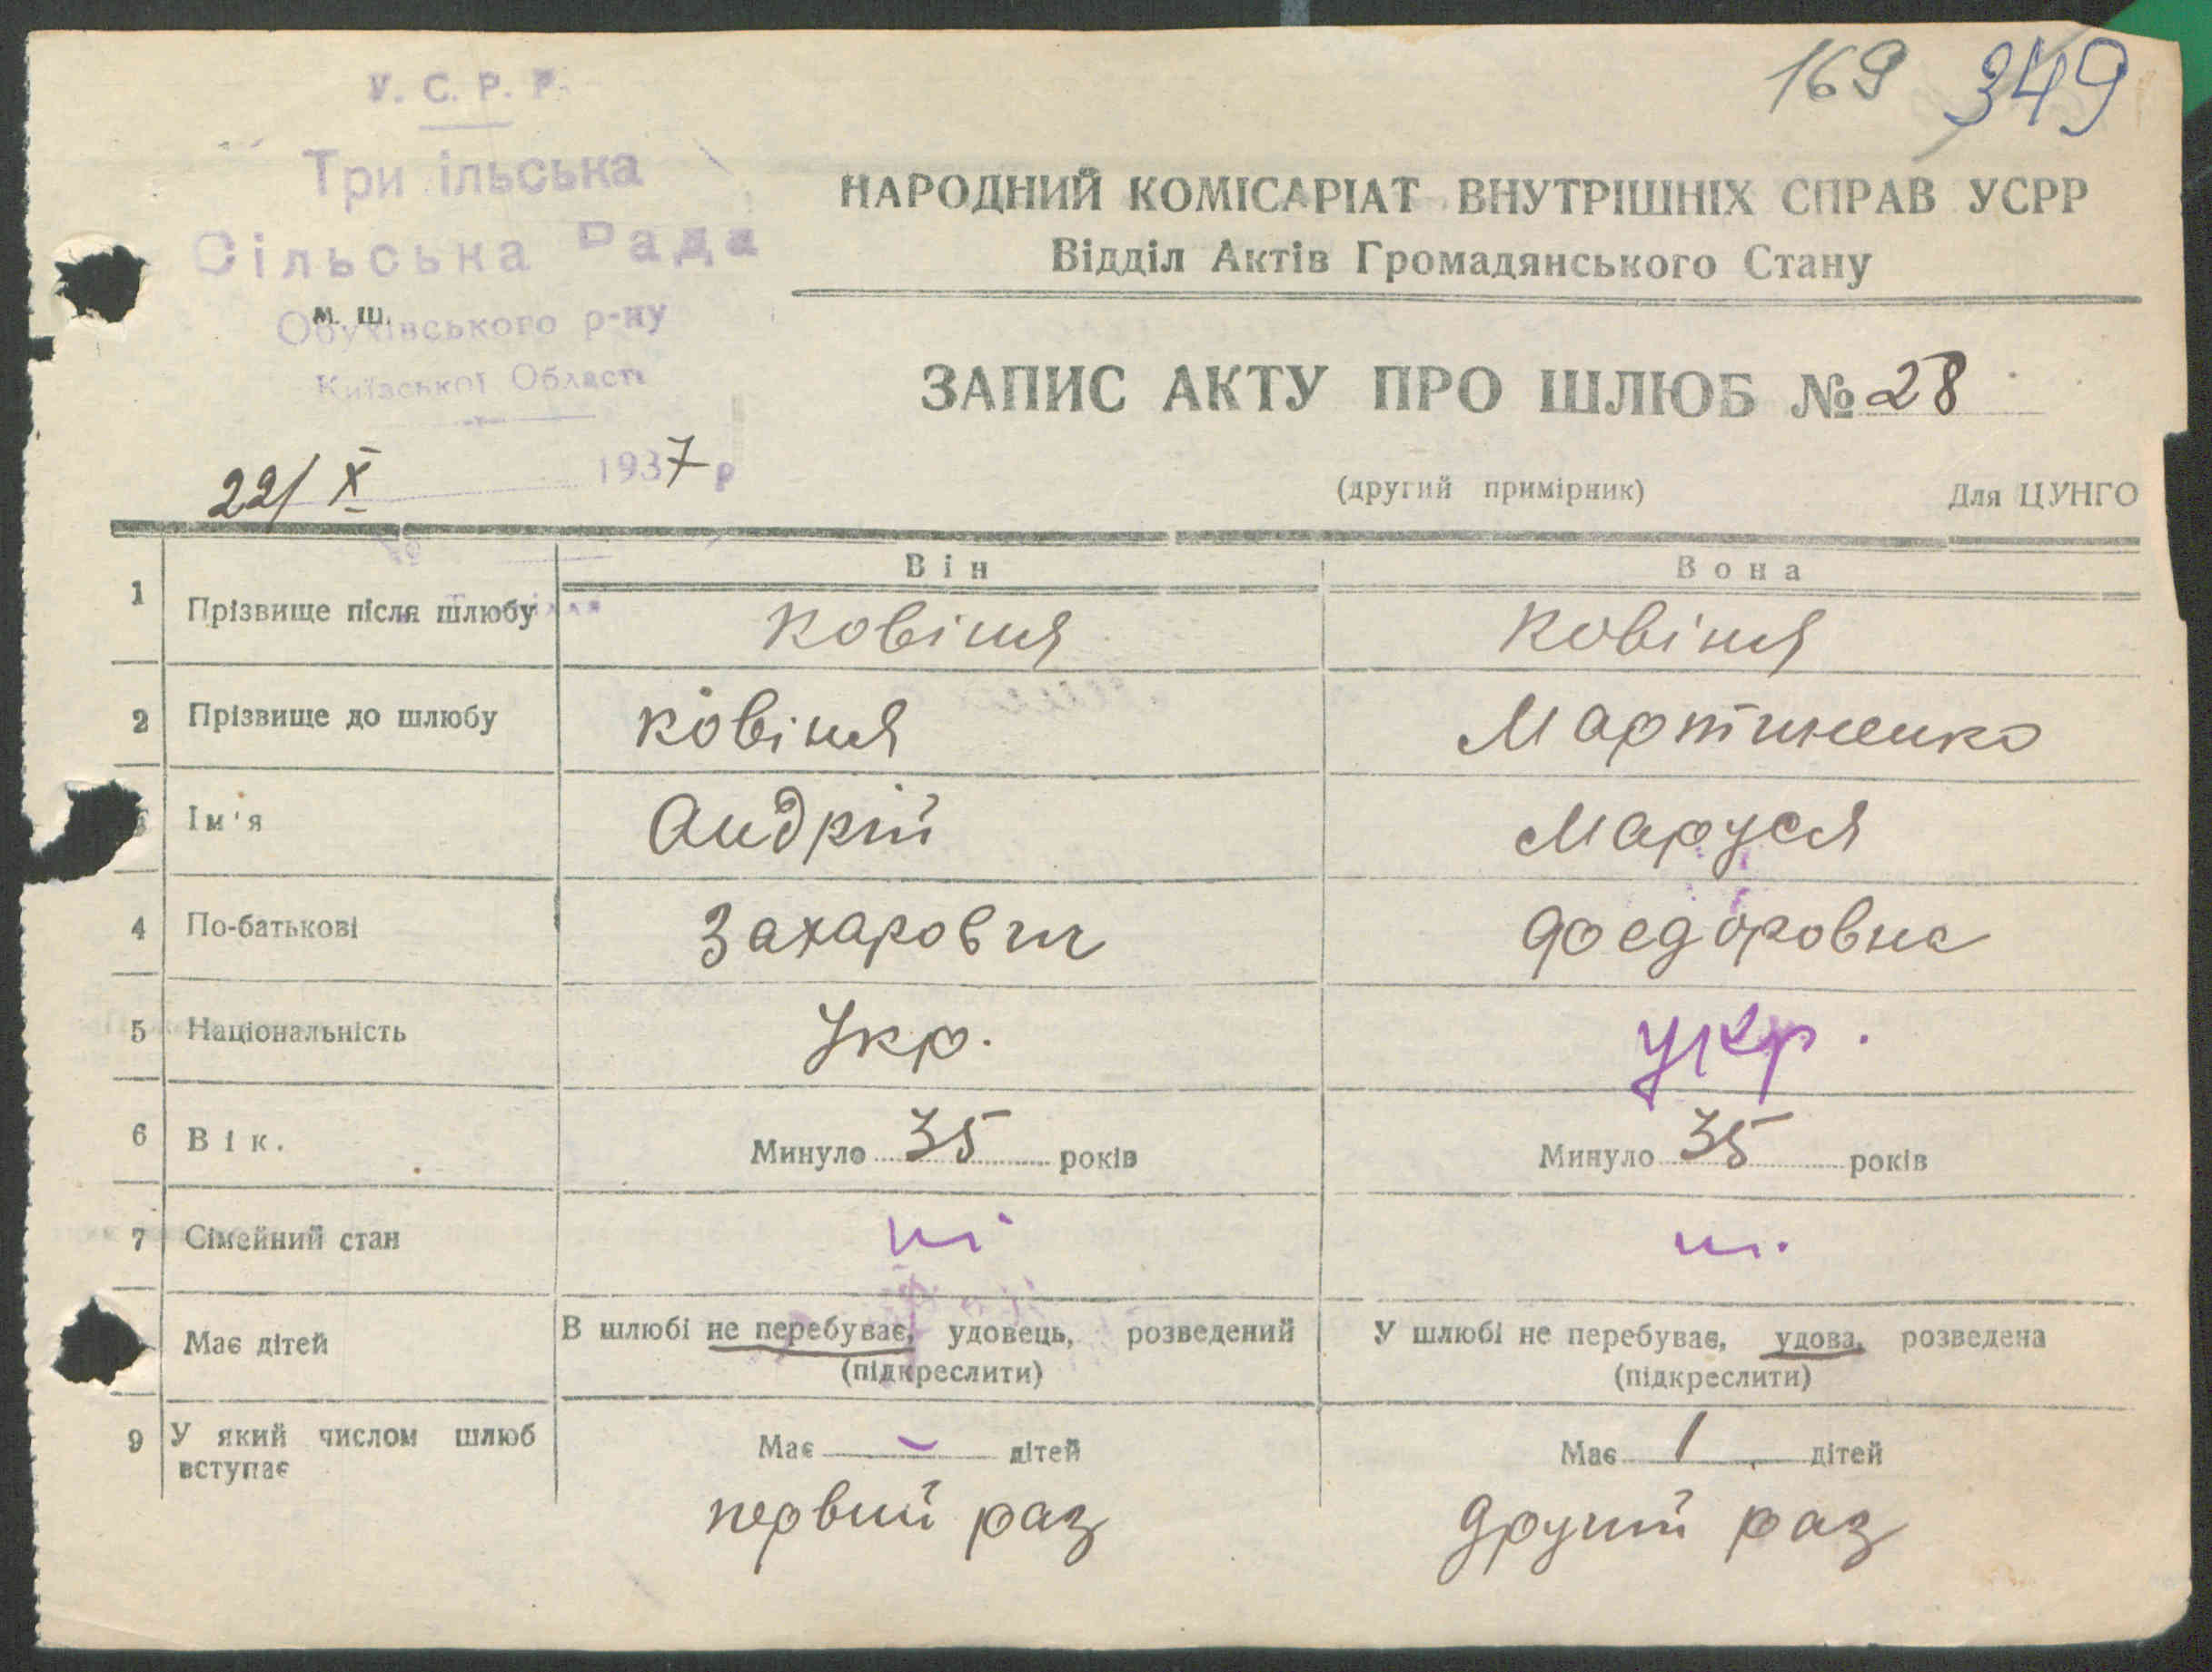 169 349
У. С. Р. Р.
Три ільська
Сільська Рада
м. ш.
Обухівського р-ну
Київської Області
22/X 1937 р
НАРОДНИЙ КОМІСАРІАТ ВНУТРІШНІХ СПРАВ УСРР
Відділ Актів Громадянського Стану
ЗАПИС АКТУ ПРО ШЛЮБ № 28
(другий примірник) Для ЦУНГО
Він Вона
1 Прізвище після шлюбу Ковіня Ковіня
2 Прізвище до шлюбу Ковіня Мартиненко
Ім'я Андрій Маруся
4 По-батькові Захарович Фоедоровна
5 Національність Укр. укр.
6 Вік. Минуло 35 років Минуло 35 років
7 Сімейний стан
Має дітей В шлюбі не перебуває, удовець, розведений У шлюбі не перебуває, удова, розведена
(підкреслити) (підкреслити)
9 У який числом шлюб Має — дітей Має 1 дітей
вступає
первий раз другий раз